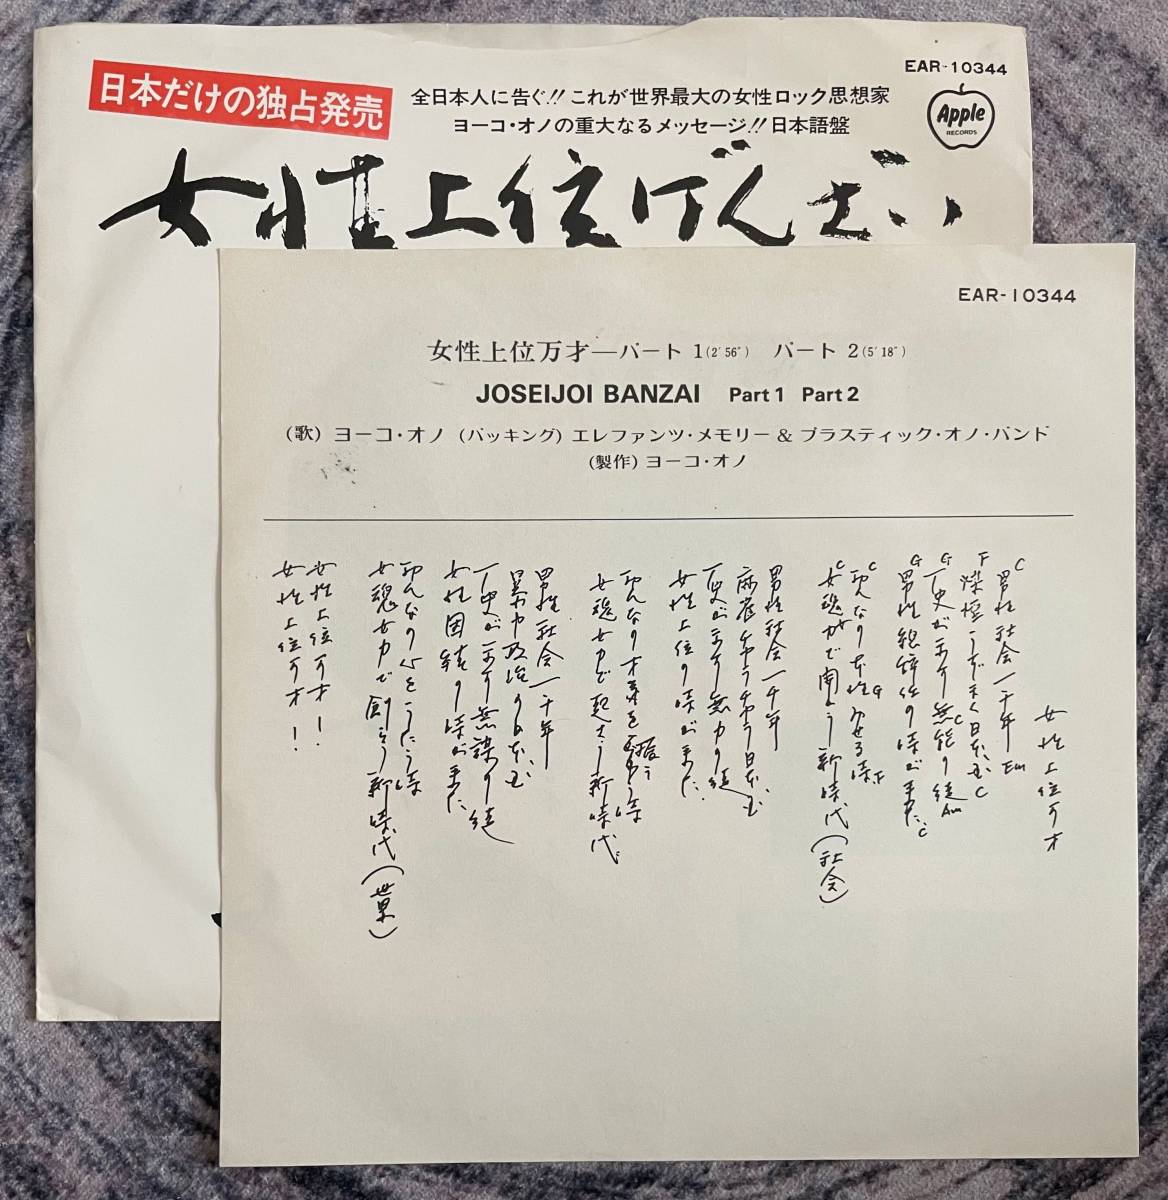 日本だけの独占発売
全日本人に告ぐ!! これが世界最大の女性ロック思想家
ヨーコ・オノの重大なるメッセージ!! 日本語盤
EAR-10344
Apple
RECORDS
女性上位ばんざい
EAR-10344
女性上位万才—パート 1(2′56″) パート 2(5′18″)
JOSEIJOI BANZAI Part 1 Part 2
(歌) ヨーコ・オノ (バッキング) エレファンツ・メモリー & プラスティック・オノ・バンド
(製作) ヨーコ・オノ
女性上位万才
C Em
男性社会一千年
F C
煤煙うずまく日本国
G C Am
歴史が示す無能の徒
G C
男性総辞任の時が来た
C G F
みせる時
C
女魂女力で開こう新時代(社会)
男性社会一千年
麻雀チャラチャラ日本国
歴史が示す無力の徒
女性上位の時が来た
振う時
女魂女力で起そう新時代
男性社会一千年
暴力政治の日本国
歴史が示す無謀の徒
女性団結の時が来た
心をうたう時
女魂女力で創ろう新時代(世界)
女性上位万才!
女性上位万才!